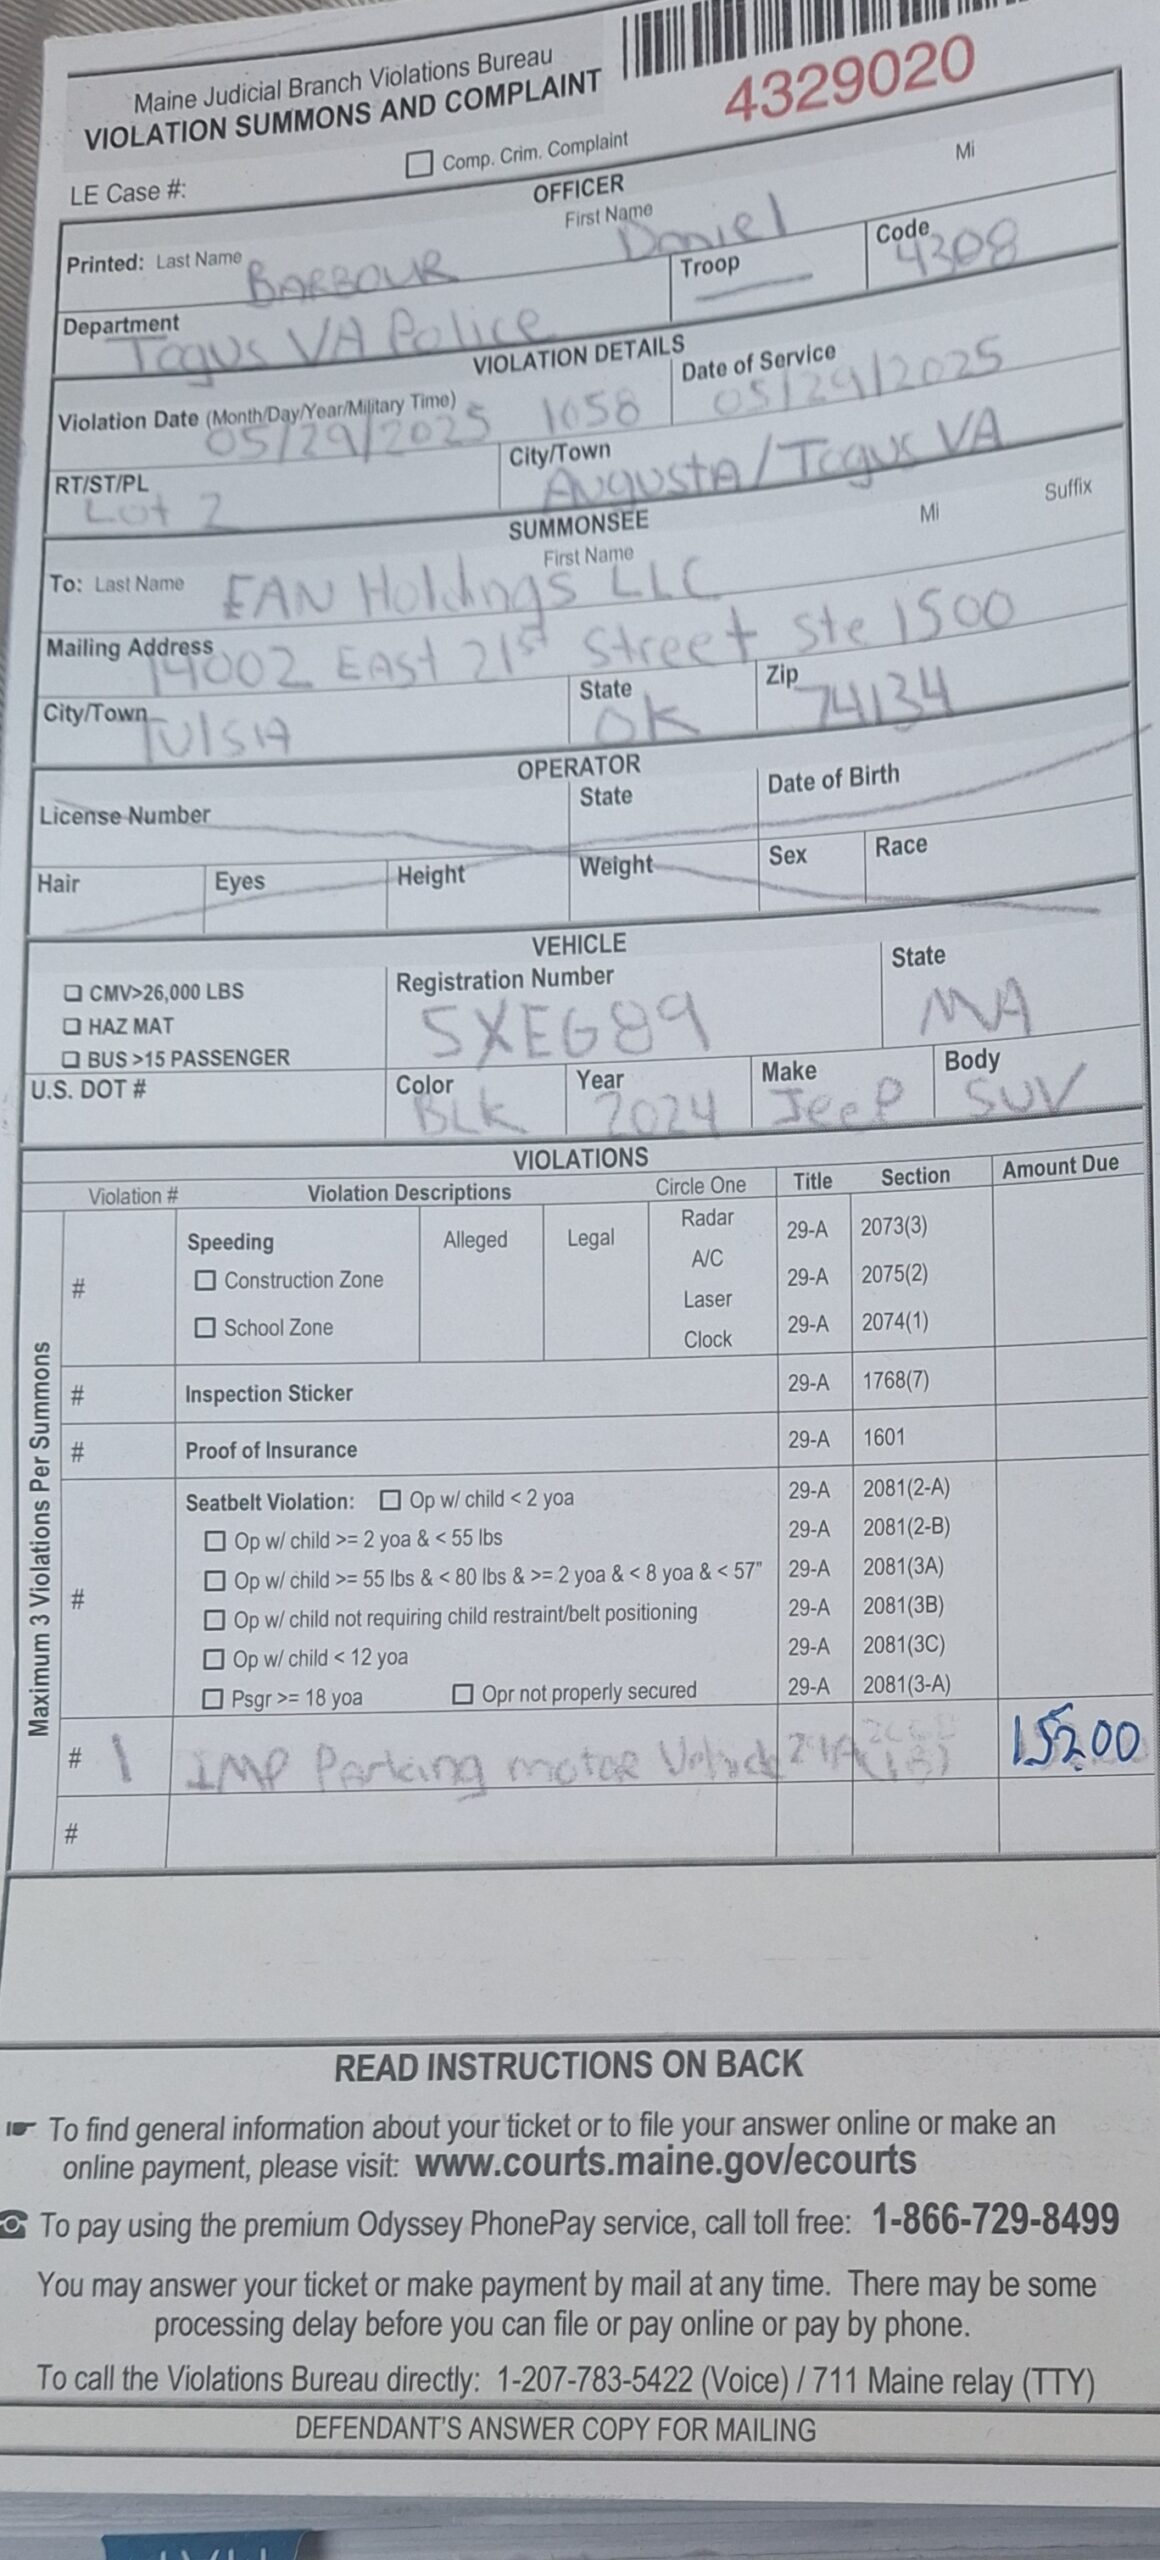 Maine Judicial Branch Violations Bureau
VIOLATION SUMMONS AND COMPLAINT
4329020
LE Case #:
Comp. Crim. Complaint
OFFICER
Printed: Last Name First Name Mi
BARBOUR Daniel
Troop Code
4308
Department
Togus VA Police
VIOLATION DETAILS
Violation Date (Month/Day/Year/Military Time) Date of Service
05/29/2025 1058 05/29/2025
RT/ST/PL City/Town
Lot 2 Augusta/Togus VA
SUMMONSEE
To: Last Name First Name Mi Suffix
EAN Holdings LLC
Mailing Address
14002 East 21st Street Ste 1500
City/Town State Zip
Tulsa OK 74134
OPERATOR
License Number State Date of Birth
Hair Eyes Height Weight Sex Race
VEHICLE
CMV>26,000 LBS
HAZ MAT
BUS >15 PASSENGER
Registration Number State
5XEG89 MA
U.S. DOT # Color Year Make Body
BLK 2024 Jeep SUV
VIOLATIONS
Violation # Violation Descriptions Circle One Title Section Amount Due
Maximum 3 Violations Per Summons
# Speeding Alleged Legal Radar 29-A 2073(3)
Construction Zone A/C 29-A 2075(2)
School Zone Laser 29-A 2074(1)
Clock
# Inspection Sticker 29-A 1768(7)
# Proof of Insurance 29-A 1601
# Seatbelt Violation: Op w/ child < 2 yoa 29-A 2081(2-A)
Op w/ child >= 2 yoa & < 55 lbs 29-A 2081(2-B)
Op w/ child >= 55 lbs & < 80 lbs & >= 2 yoa & < 8 yoa & < 57" 29-A 2081(3A)
Op w/ child not requiring child restraint/belt positioning 29-A 2081(3B)
Op w/ child < 12 yoa 29-A 2081(3C)
Psgr >= 18 yoa Opr not properly secured 29-A 2081(3-A)
# 1 IMP Parking motor Vehicle 152.00
#
READ INSTRUCTIONS ON BACK
To find general information about your ticket or to file your answer online or make an
online payment, please visit: www.courts.maine.gov/ecourts
To pay using the premium Odyssey PhonePay service, call toll free: 1-866-729-8499
You may answer your ticket or make payment by mail at any time. There may be some
processing delay before you can file or pay online or pay by phone.
To call the Violations Bureau directly: 1-207-783-5422 (Voice) / 711 Maine relay (TTY)
DEFENDANT'S ANSWER COPY FOR MAILING